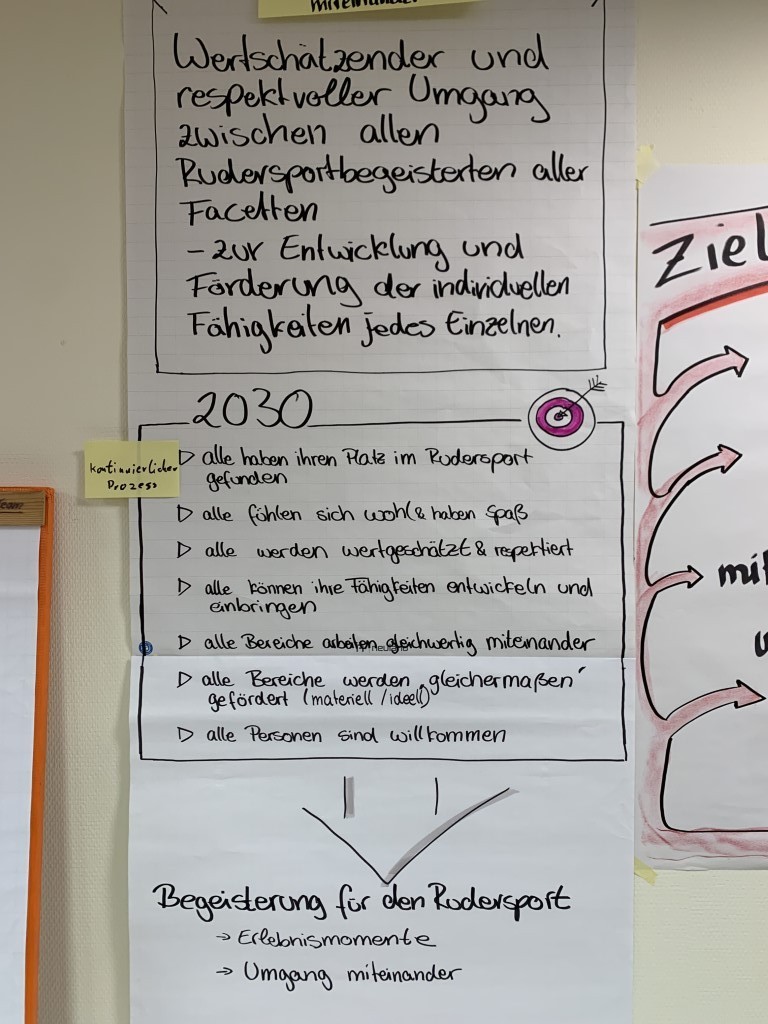 miteinander
Wertschätzender und
respektvoller Umgang
zwischen allen
Rudersportbegeisterten aller
Facetten
- zur Entwicklung und
Förderung der individuellen
Fähigkeiten jedes Einzelnen.
2030
kontinuierlicher
Prozess
▷ alle haben ihren Platz im Rudersport
gefunden
▷ alle fühlen sich wohl & haben Spaß
▷ alle werden wertgeschätzt & respektiert
▷ alle können ihre Fähigkeiten entwickeln und
einbringen
▷ alle Bereiche arbeiten gleichwertig miteinander
▷ alle Bereiche werden „gleichermaßen"
gefördert (materiell / ideell)
▷ alle Personen sind willkommen
Begeisterung für den Rudersport
→ Erlebnismomente
→ Umgang miteinander
Ziel